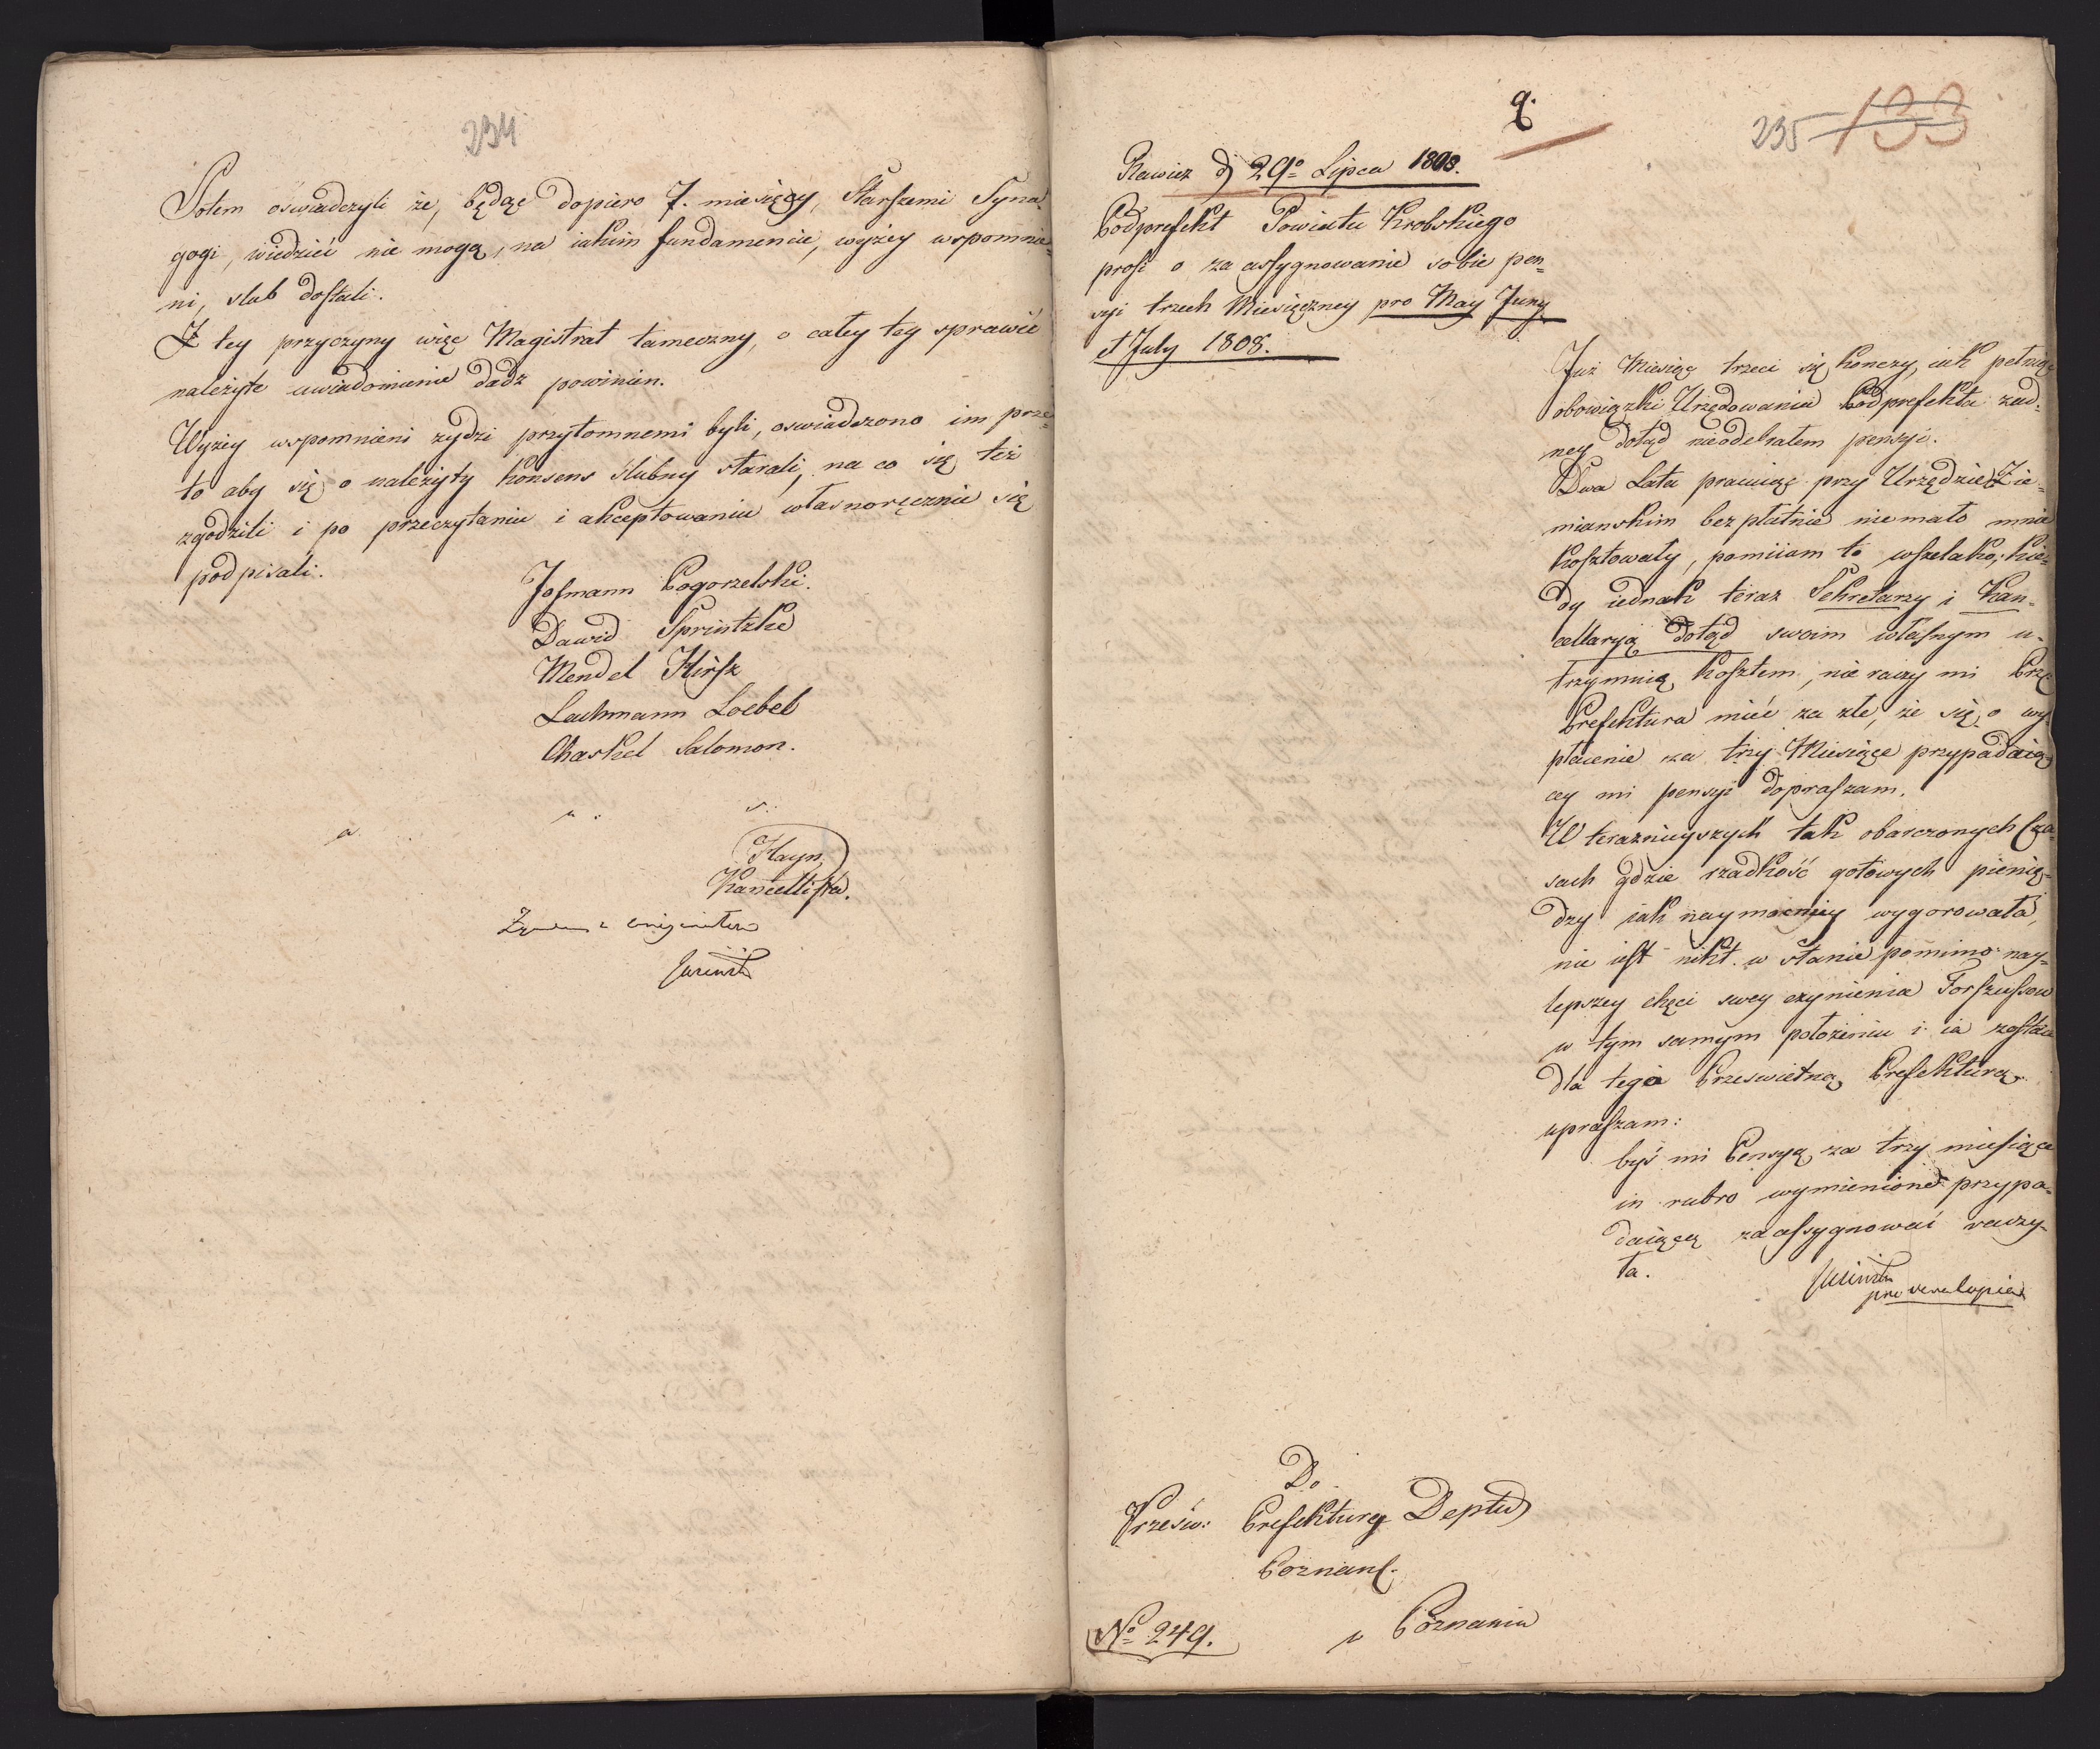 234
Potem oswiadczyli że, będąc dopiero 7. miesięcy, Starszemi Syna=
gogi, wiedzieć nie mogą, na iakim fundamencie, wyżey wspomnie=
ni, slub dostali.
Z tey przyczyny więc Magistrat tameczny, o całey tey sprawie
należyte uwiadomienie dadz powinien.
Wyżey wspomnieni żydzi przytomnemi byli, oswiadczono im prze=
to aby się o należyty Konsens slubny starali, na co się też
zgodzili i po przeczytaniu i akceptowaniu własnoręcznie się
podpisali.
Josmann Pogorzelski.
Dawid Sprintzke
Mendel Hirsz
Lachmann Loebel
Chaskel Salomon.
a. u. s.
Hayn,
Kancellista.
originałem
q.
235 133
Rawicz dj 29º Lipca 1808.
Podprefekt Powiatu Krobskiego
prosi o za assygnowanie sobie pen=
syi trzech Miesięczney pro May Juny
et July 1808.
Już Miesiąc trzeci się kończy, iak pełniąc
obowiązki Urzędowania Podprefekta żad=
ney dotąd nieodebrałem pensyi.
Dwa Lata pracuiąc przy Urzędzie Zie=
mianskim bezpłatnie niemało mnie
kosztowały, pomiiam to wszelako, kie=
dy iednak teraz Sekretarzy i Kan=
cellaryą dotąd swoim własnym u=
trzymuię kosztem, nie raczy mi Prze
Prefektura mieć za złe, że się o wy=
płacenie za trzy Miesiące przypadaią
cey mi pensyi dopraszam.
W teraznieyszych tak obarczonych Cza=
sach gdzie rzadkość gotowych pienię=
dzy iak naymocniey wygorowała,
nie iest nikt w stanie pomimo nay=
lepszey chęci swey czynienia Forszussow
w tym samym położeniu i ia zostaię
dla tego Przeswietną Prefekturę
upraszam:
byś mi Pensyą za trzy miesiące
in rubro wymienione przypa=
daiącą zaassygnować raczy=
ła.
pro vera copia
Do
Przesw: Prefektury Deptu
Poznans.
w Poznaniu
Nº 249.